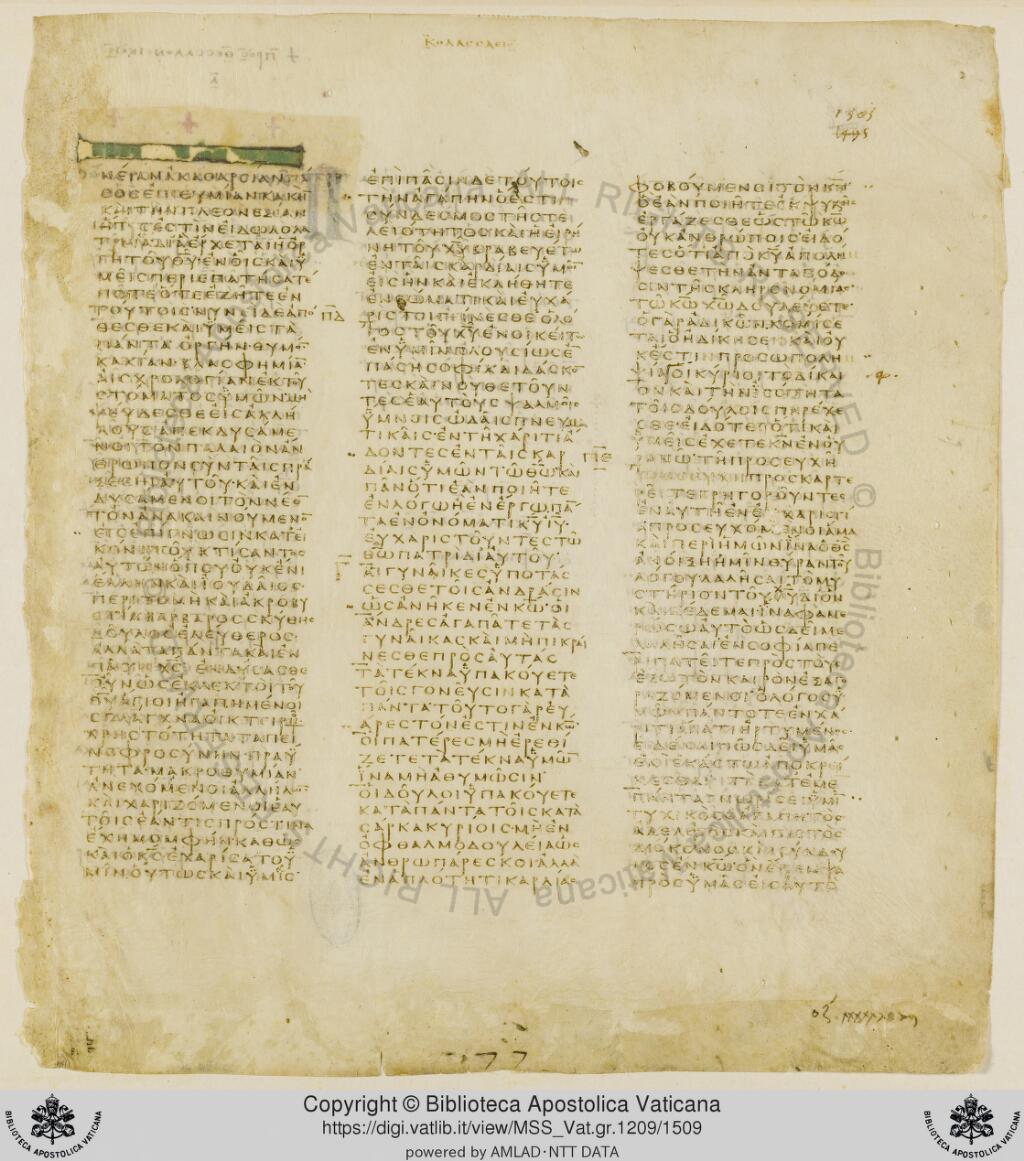 ΚΟΛΑΣΣΑΕΙΣ
1505
ΝΕΙΑΝΑΚΑΘΑΡΣΙΑΝΠΑ
ΘΟΣΕΠΙΘΥΜΙΑΝΚΑΚΗ
ΚΑΙΤΗΝΠΛΕΟΝΕΞΙΑΝ
ΗΤΙΣΕΣΤΙΝΕΙΔΩΛΟΛΑ
ΤΡΙΑΔΙΑΕΡΧΕΤΑΙΗΟΡ
ΓΗΤΟΥΘΥΕΝΟΙΣΚΑΙΥ
ΜΕΙΣΠΕΡΙΕΠΑΤΗΣΑΤΕ
ΠΟΤΕΟΤΕΕΖΗΤΕΕΝ
ΤΟΥΤΟΙΣΝΥΝΕΙΔΕΑΠΟ
ΘΕΣΘΕΚΑΙΥΜΕΙΣΤΑ
ΠΑΝΤΑΟΡΓΗΝΘΥΜΟ
ΚΑΚΙΑΝΒΛΑΣΦΗΜΙΑ
ΑΙΣΧΡΟΛΟΓΙΑΝΕΚΤΟΥ
ΣΤΟΜΑΤΟΣΥΜΩΝΜΗ
ΨΕΥΔΕΣΘΕΕΙΣΑΛΛΗ
ΛΟΥΣΑΠΕΚΔΥΣΑΜΕ
ΝΟΙΤΟΝΠΑΛΑΙΟΝΑΝ
ΘΡΩΠΟΝΣΥΝΤΑΙΣΠΡΑ
ΞΕΣΙΝΑΥΤΟΥΚΑΙΕΝ
ΔΥΣΑΜΕΝΟΙΤΟΝΝΕΟ
ΤΟΝΑΝΑΚΑΙΝΟΥΜΕΝΟ
ΕΙΣΕΠΙΓΝΩΣΙΝΚΑΤΕΙ
ΚΟΝΑΤΟΥΚΤΙΣΑΝΤΟΣ
ΑΥΤΟΝΟΠΟΥΟΥΚΕΝΙ
ΕΛΛΗΝΚΑΙΙΟΥΔΑΙΟΣ
ΠΕΡΙΤΟΜΗΚΑΙΑΚΡΟΒΥ
ΣΤΙΑΒΑΡΒΑΡΟΣΣΚΥΘΗΣ
ΔΟΥΛΟΣΕΛΕΥΘΕΡΟΣ
ΑΛΛΑΤΑΠΑΝΤΑΚΑΙΕΝ
ΠΑΣΙΝΧΣΕΝΔΥΣΑΣΘΕ
ΟΥΝΩΣΕΚΛΕΚΤΟΙΤΟΥ
ΘΥΑΓΙΟΙΗΓΑΠΗΜΕΝΟΙ
ΣΠΛΑΓΧΝΑΟΙΚΤΕΙΡΜΟΥ
ΧΡΗΣΤΟΤΗΤΑΤΑΠΕΙ
ΝΟΦΡΟΣΥΝΗΝΠΡΑΥ
ΤΗΤΑΜΑΚΡΟΘΥΜΙΑΝ
ΑΝΕΧΟΜΕΝΟΙΑΛΛΗΛΩ
ΚΑΙΧΑΡΙΖΟΜΕΝΟΙΕΑΥ
ΤΟΙΣΕΑΝΤΙΣΠΡΟΣΤΙΝΑ
ΕΧΗΜΟΜΦΗΝΚΑΘΩΣ
ΚΑΙΟΚΣΕΧΑΡΙΣΑΤΟΥ
ΜΙΝΟΥΤΩΣΚΑΙΥΜΕΙΣ
ΠΔ
ΕΠΙΠΑΣΙΝΔΕΤΟΥΤΟΙΣ
ΤΗΝΑΓΑΠΗΝΟΕΣΤΙ
ΣΥΝΔΕΣΜΟΣΤΗΣΤΕ
ΛΕΙΟΤΗΤΟΣΚΑΙΗΕΙΡΗ
ΝΗΤΟΥΧΥΒΡΑΒΕΥΕΤΩ
ΕΝΤΑΙΣΚΑΡΔΙΑΙΣΥΜΩ
ΕΙΣΗΝΚΑΙΕΚΛΗΘΗΤΕ
ΕΝΣΩΜΑΤΙΚΑΙΕΥΧΑ
ΡΙΣΤΟΙΓΙΝΕΣΘΕΟΛΟ
ΓΟΣΤΟΥΧΥΕΝΟΙΚΕΙΤΩ
ΕΝΥΜΙΝΠΛΟΥΣΙΩΣΕ
ΠΑΣΗΣΟΦΙΑΔΙΔΑΣΚΟ
ΤΕΣΚΑΙΝΟΥΘΕΤΟΥΝ
ΤΕΣΕΑΥΤΟΥΣΨΑΛΜΟΙΣ
ΥΜΝΟΙΣΩΔΑΙΣΠΝΕΥΜΑ
ΤΙΚΑΙΣΕΝΤΗΧΑΡΙΤΙΑ
ΔΟΝΤΕΣΕΝΤΑΙΣΚΑΡ
ΔΙΑΙΣΥΜΩΝΤΩΘΩΚΑΙ
ΠΑΝΟΤΙΕΑΝΠΟΙΗΤΕ
ΕΝΛΟΓΩΗΕΝΕΡΓΩΠΑ
ΤΑΕΝΟΝΟΜΑΤΙΚΥΙΥ
ΕΥΧΑΡΙΣΤΟΥΝΤΕΣΤΩ
ΘΩΠΑΤΡΙΔΙΑΥΤΟΥ
ΑΙΓΥΝΑΙΚΕΣΥΠΟΤΑΣ
ΣΕΣΘΕΤΟΙΣΑΝΔΡΑΣΙΝ
ΩΣΑΝΗΚΕΝΕΝΚΩΟΙ
ΑΝΔΡΕΣΑΓΑΠΑΤΕΤΑΣ
ΓΥΝΑΙΚΑΣΚΑΙΜΗΠΙΚΡΑΙ
ΝΕΣΘΕΠΡΟΣΑΥΤΑΣ
ΤΑΤΕΚΝΑΥΠΑΚΟΥΕΤΕ
ΤΟΙΣΓΟΝΕΥΣΙΝΚΑΤΑ
ΠΑΝΤΑΤΟΥΤΟΓΑΡΕΥ
ΑΡΕΣΤΟΝΕΣΤΙΝΕΝΚΩ
ΟΙΠΑΤΕΡΕΣΜΗΕΡΕΘΙ
ΖΕΤΕΤΑΤΕΚΝΑΥΜΩ
ΙΝΑΜΗΑΘΥΜΩΣΙΝ
ΟΙΔΟΥΛΟΙΥΠΑΚΟΥΕΤΕ
ΚΑΤΑΠΑΝΤΑΤΟΙΣΚΑΤΑ
ΣΑΡΚΑΚΥΡΙΟΙΣΜΗΕΝ
ΟΦΘΑΛΜΟΔΟΥΛΕΙΑΩΣ
ΑΝΘΡΩΠΑΡΕΣΚΟΙΑΛΛΑ
ΕΝΑΠΛΟΤΗΤΙΚΑΡΔΙΑΣ
ΠΕ
ΦΟΒΟΥΜΕΝΟΙΤΟΝΚΝ
ΟΕΑΝΠΟΙΗΤΕΕΚΨΥΧΗΣ
ΕΡΓΑΖΕΣΘΕΩΣΤΩΚΩ
ΟΥΚΑΝΘΡΩΠΟΙΣΕΙΔΟ
ΤΕΣΟΤΙΑΠΟΚΥΑΠΟΛΗΜ
ΨΕΣΘΕΤΗΝΑΝΤΑΠΟΔΟ
ΣΙΝΤΗΣΚΛΗΡΟΝΟΜΙΑΣ
ΤΩΚΩΧΩΔΟΥΛΕΥΕΤΕ
ΟΓΑΡΑΔΙΚΩΝΚΟΜΙΣΕ
ΤΑΙΟΗΔΙΚΗΣΕΝΚΑΙΟΥ
ΚΕΣΤΙΝΠΡΟΣΩΠΟΛΗ
ΨΙΑΟΙΚΥΡΙΟΙΤΟΔΙΚΑΙ
ΟΝΚΑΙΤΗΝΙΣΟΤΗΤΑ
ΤΟΙΣΔΟΥΛΟΙΣΠΑΡΕΧΕ
ΣΘΕΕΙΔΟΤΕΣΟΤΙΚΑΙ
ΥΜΕΙΣΕΧΕΤΕΚΝΕΝΟΥ
ΡΑΝΩΤΗΠΡΟΣΕΥΧΗ
ΠΡΟΣΚΑΡΤΕ
ΡΕΙΤΕΓΡΗΓΟΡΟΥΝΤΕΣ
ΕΝΑΥΤΗΕΝΕΥΧΑΡΙΣΤΙ
ΑΠΡΟΣΕΥΧΟΜΕΝΟΙΑΜΑ
ΚΑΙΠΕΡΙΗΜΩΝΙΝΑΟΘΣ
ΑΝΟΙΞΗΗΜΙΝΘΥΡΑΝΤΟΥ
ΛΟΓΟΥΛΑΛΗΣΑΙΤΟΜΥ
ΣΤΗΡΙΟΝΤΟΥΘΥΔΙΟΝ
ΚΑΙΔΕΔΕΜΑΙΙΝΑΦΑΝΕ
ΡΩΣΩΑΥΤΟΩΣΔΕΙΜΕ
ΛΑΛΗΣΑΙΕΝΣΟΦΙΑΠΕ
ΡΙΠΑΤΕΙΤΕΠΡΟΣΤΟΥΣ
ΕΞΩΤΟΝΚΑΙΡΟΝΕΞΑΓΟ
ΡΑΖΟΜΕΝΟΙΟΛΟΓΟΣΥ
ΜΩΝΠΑΝΤΟΤΕΕΝΧΑ
ΡΙΤΙΑΛΑΤΙΗΡΤΥΜΕΝΟΣ
ΕΙΔΕΝΑΙΠΩΣΔΕΙΥΜΑΣ
ΕΝΙΕΚΑΣΤΩΑΠΟΚΡΕΙ
ΝΕΣΘΑΙΤΑΚΑΤΕΜΕ
ΠΑΝΤΑΓΝΩΡΙΣΕΙΥΜΙ
ΤΥΧΙΚΟΣΟΑΓΑΠΗΤΟΣ
ΑΔΕΛΦΟΣΚΑΙΠΙΣΤΟΣ
ΔΙΑΚΟΝΟΣΚΑΙΣΥΝΔΟΥ
ΛΟΣΕΝΚΩΟΝΕΠΕΜΨΑ
ΠΡΟΣΥΜΑΣΕΙΣΑΥΤΟ
Copyright © Biblioteca Apostolica Vaticana
https://digi.vatlib.it/view/MSS_Vat.gr.1209/1509
powered by AMLAD·NTT DATA
BIBLIOTECA APOSTOLICA VATICANA
BIBLIOTECA APOSTOLICA VATICANA